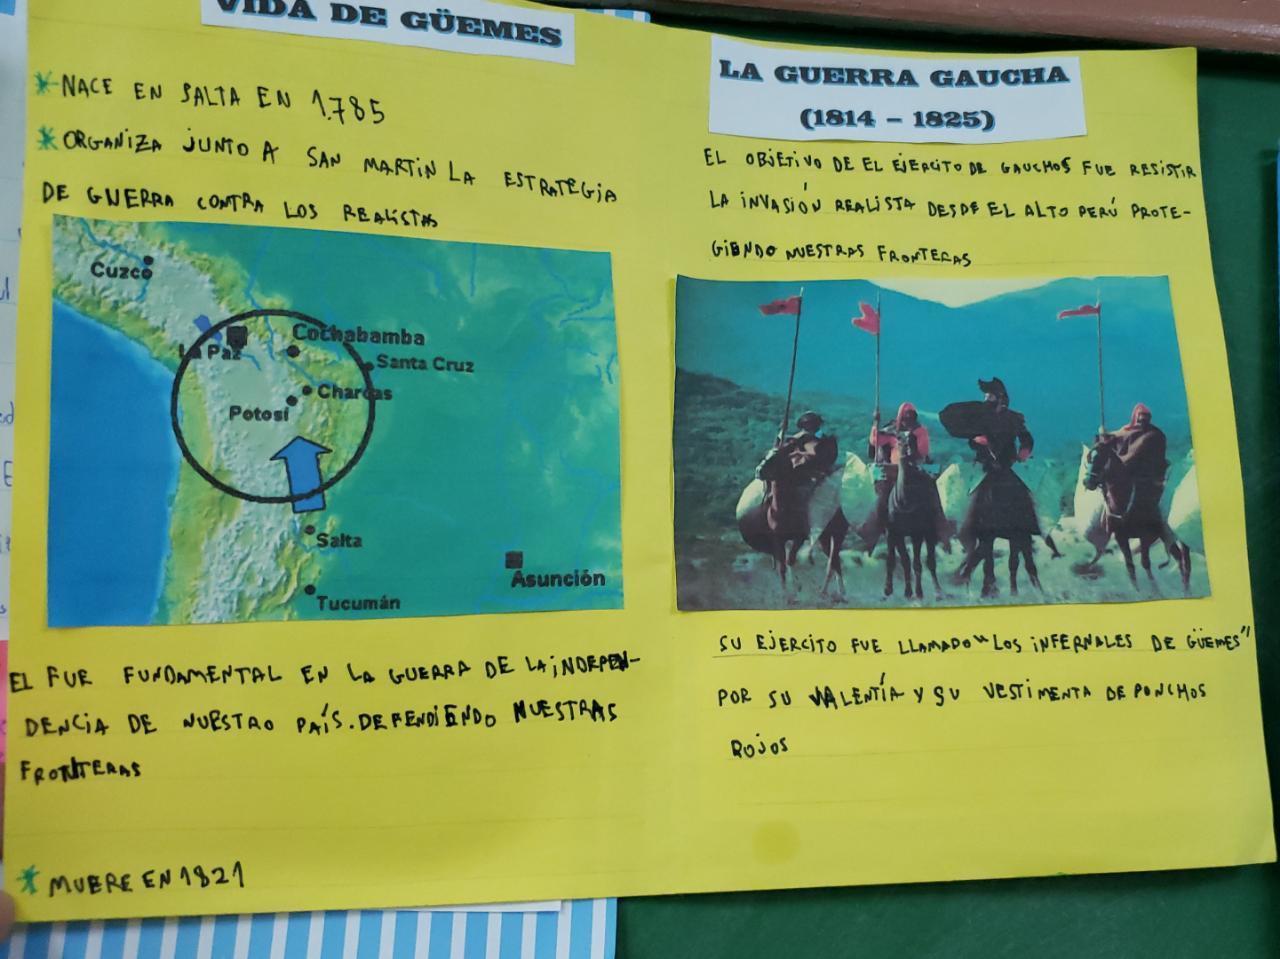 VIDA DE GÜEMES
* NACE EN SALTA EN 1.785
* ORGANIZA JUNTO A SAN MARTIN LA ESTRATEGIA
DE GUERRA CONTRA LOS REALISTAS
Cuzco
La Paz
Cochabamba
Santa Cruz
Charcas
Potosí
Salta
Asunción
Tucumán
EL FUE FUNDAMENTAL EN LA GUERRA DE LA INDEPEN-
DENCIA DE NUESTRO PAÍS. DEFENDIENDO NUESTRAS
FRONTERAS
* MUERE EN 1821
LA GUERRA GAUCHA
(1814 – 1825)
EL OBJETIVO DE EL EJERCITO DE GAUCHOS FUE RESISTIR
LA INVASIÓN REALISTA DESDE EL ALTO PERÚ PROTE-
GIENDO NUESTRAS FRONTERAS
SU EJERCITO FUE LLAMADO "LOS INFERNALES DE GÜEMES"
POR SU VALENTÍA Y SU VESTIMENTA DE PONCHOS
ROJOS